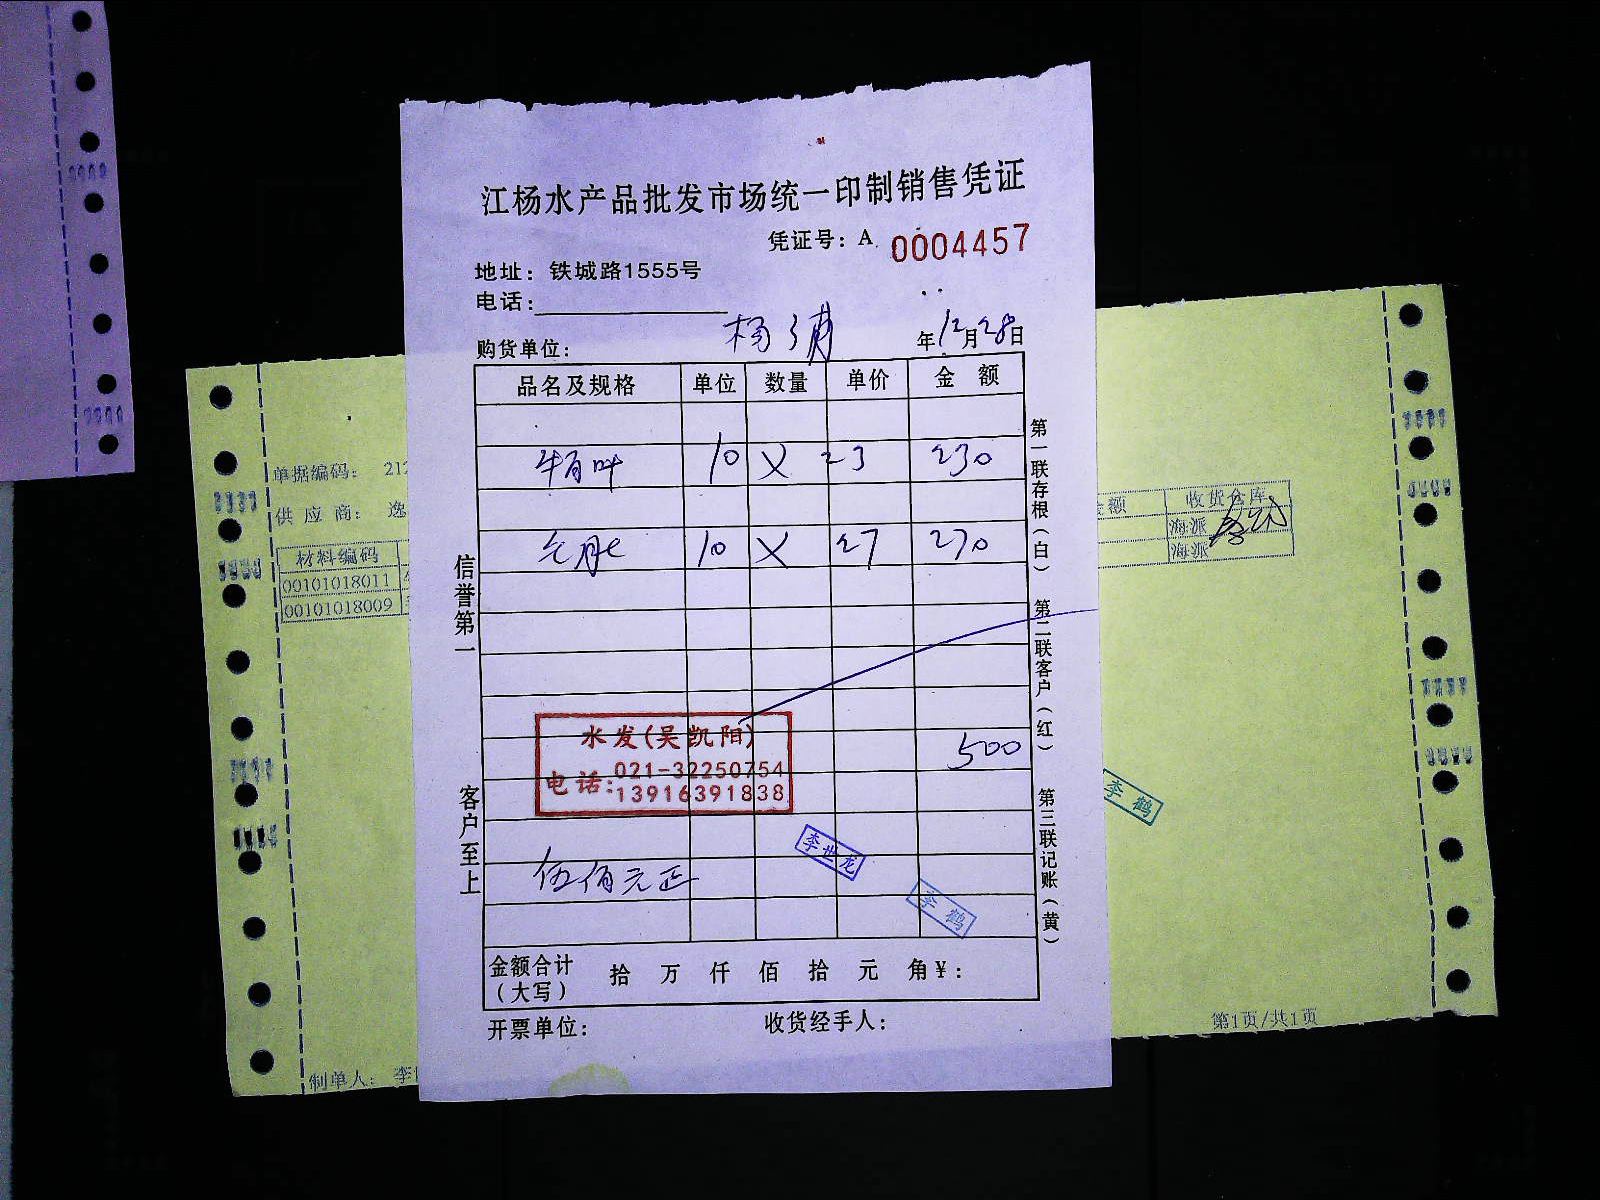 江杨水产品批发市场统一印制销售凭证
凭证号：A 0004457
地址：铁城路1555号
电话：
购货单位： 年12月28日
品名及规格 单位 数量 单价 金额
10 X 23 230
10 X 27 270
500
水发(吴凯阳)
电话：021-32250754
13916391838
李世龙
李鹤
伍佰元正
金额合计（大写） 拾 万 仟 佰 拾 元 角 ¥：
开票单位： 收货经手人：
信誉第一
客户至上
第一联存根（白）
第二联客户（红）
第三联记账（黄）
单据编码： 212
供应商： 逸
材料编码
00101018011
00101018009
额 收货仓库
海派
海派
李鹤
制单人： 李
第1页/共1页